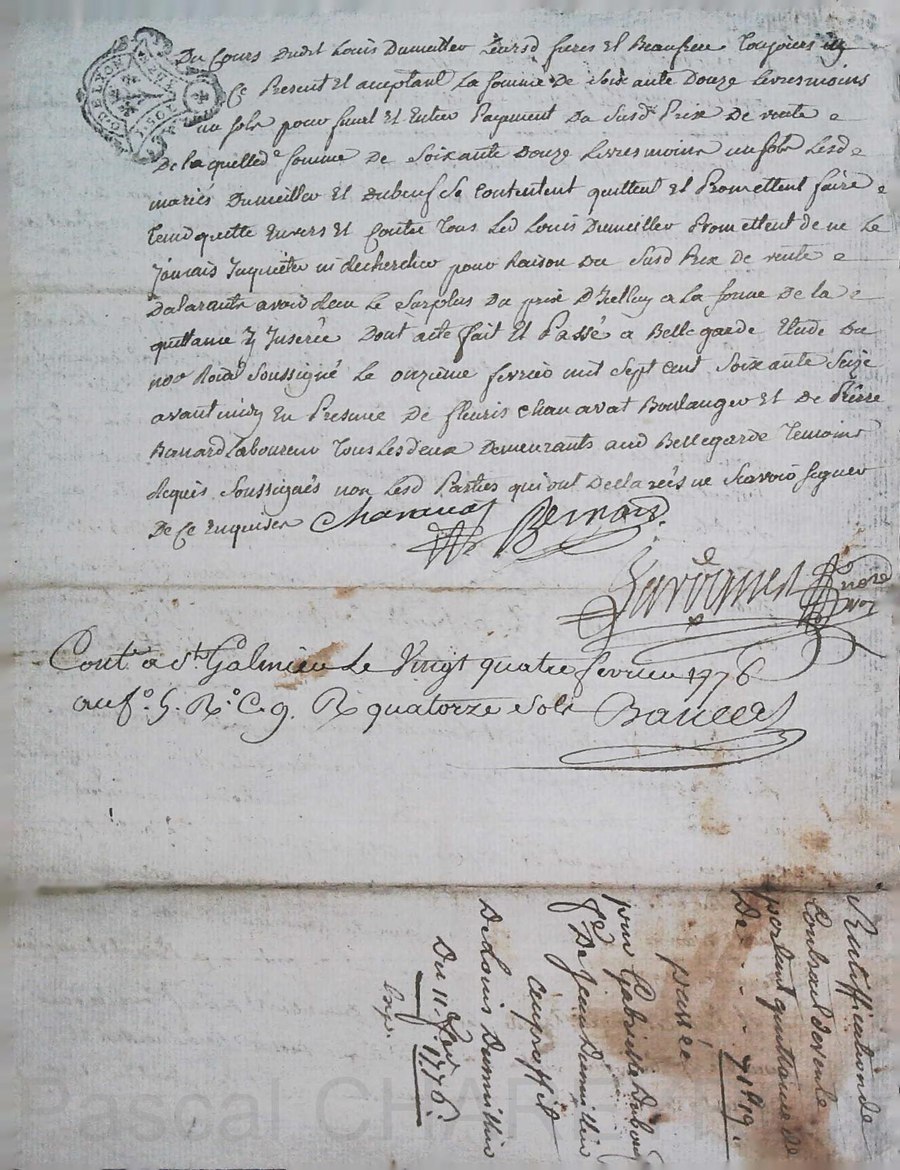 Du Cours Dudit Louis Dumeiller Leursd freres Et Beaufrere Toujours icy
Ce Present Et aceptant La Somme De Soixante Douze Livres moins
un sols pour final Et Entier Payment Du Susd Prix De vente
De laquelle de somme De Soixante Douze Livres moins un sols Lesd
mariés Dumeiller Et Dubeuf Se Contentent quittent Et Promettent faire
Tenir quitte Envers Et Contre Tous Led Louis Dumeiller Promettent de ne Le
Jamais Inquieter ni Rechercher pour Raison Du Susd Prix De vente
Le Surplus Du prix a La forme De la
quittance y Inserée Dont acte fait Et Passé a Bellegarde Etude Du
nore Roial Soussigné Le onzieme fevrier mil Sept Cent Soixante Seize
avant midy En Presence De fleuris Chanavat Boulanger Et De Pierre
Laboureur Tous Lesdeux Demeurants aud Bellegarde Temoins
Requis Soussignés non Lesd Parties qui ont Declarées ne Scavoir Signer
De Ce Enquises Chanavat Bernard
nore
Roy
Cont. a St Galmier Le Vingt quatre fevrier 1776
au fo. 5. Ro. C. 9. R quatorze sols
G. DE LYON
1. SOL
Rattiffication de
Contract de vente
portant quittance de
De - - - 71 lt 19.
passée
par Gabrielle Dubeuf
fe De Jean Dumillier
au proffit
De Louis Dumillier
Du 11. fev. 1776.
Exp.
Pascal CHAR